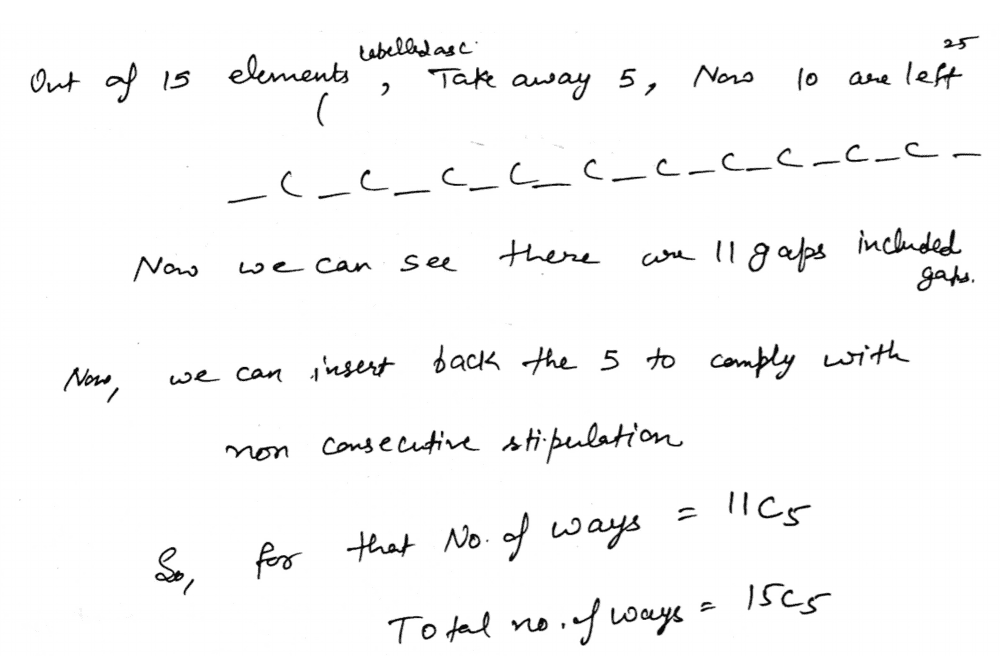 labelled as c.
25
Out of 15 elements, Take away 5, Now 10 are left
(
_ C _ C _ C _ C _ C _ C _ C _ C _ C _ C _
Now we can see there are 11 gaps included
gaps.
Now, we can insert back the 5 to comply with
non consecutive stipulation
So, for that No. of ways = 11C5
Total no. of ways = 15C5